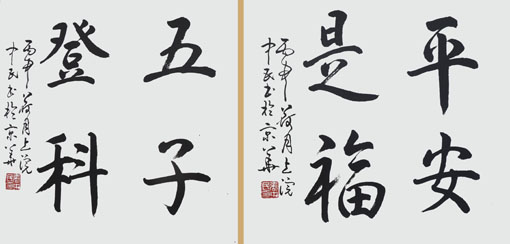 平安
是福
丙申荷月上浣
中民书於京华
五子
登科
丙申荷月上浣
中民书於京华